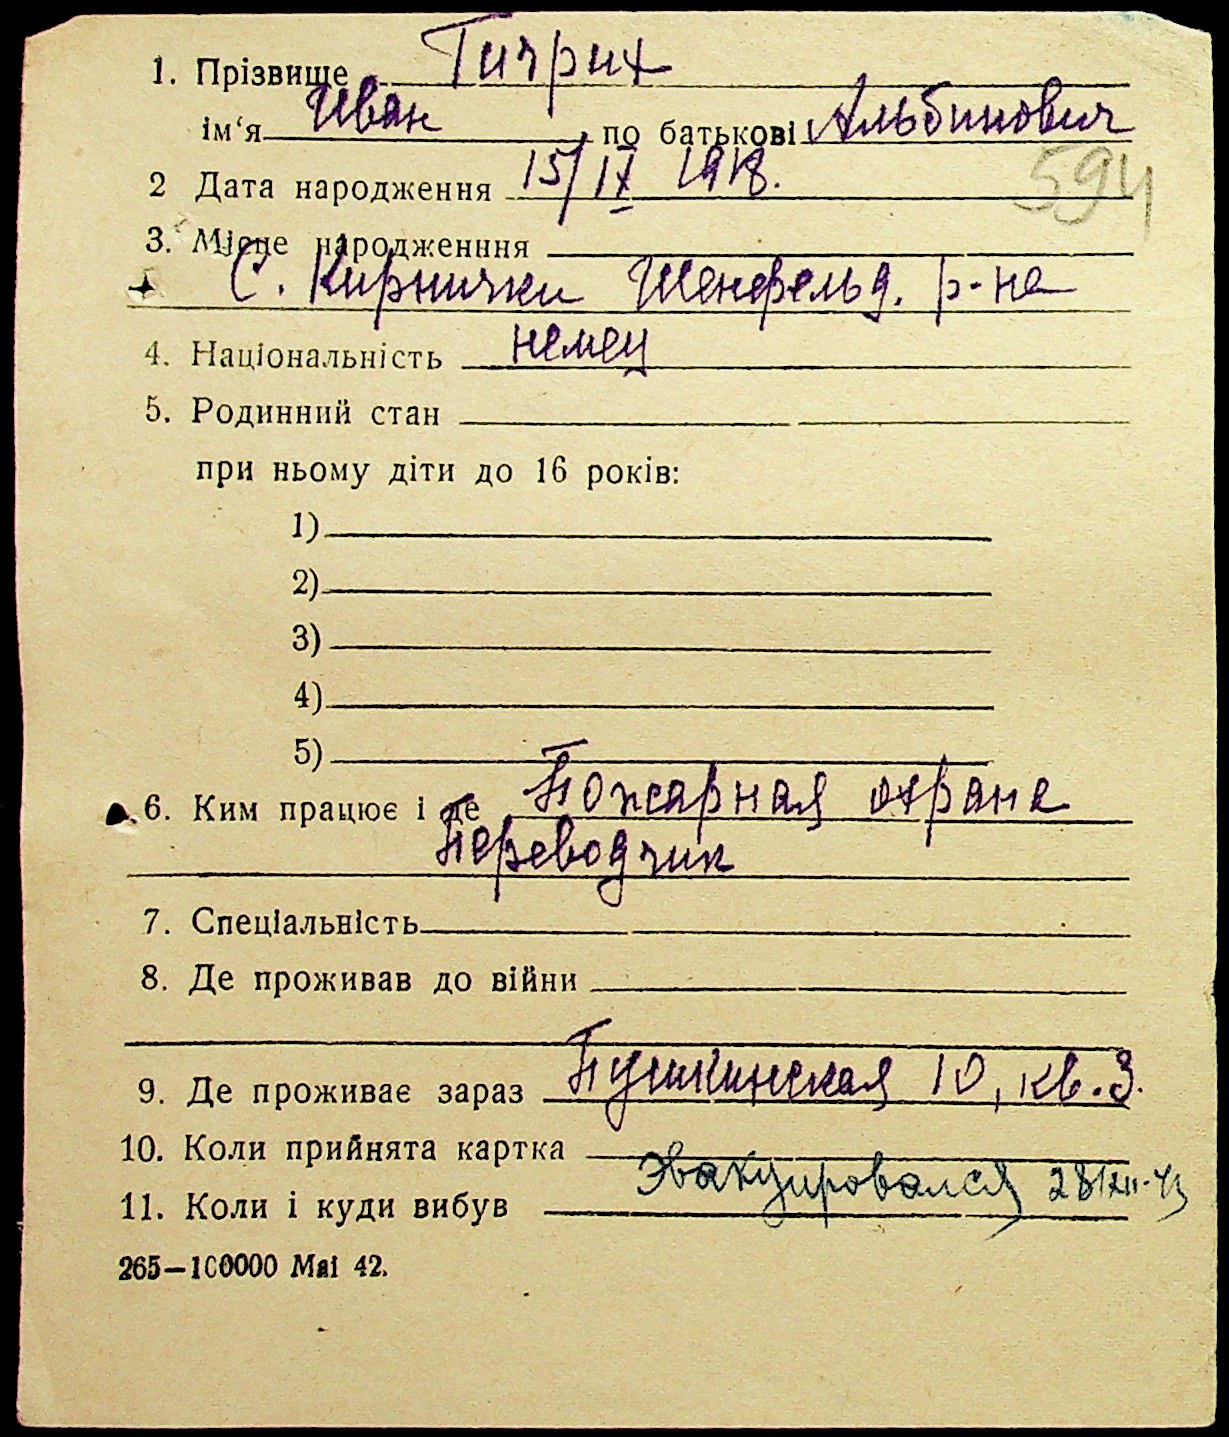 1. Прізвище Гичрих
ім‘я Иван по батькові Альбинович
2 Дата народження 15/IX 1918.
594
3. Місце народженння
С. Кирнички Шенфельд. р-на
4. Національність немец
5. Родинний стан
при ньому діти до 16 років:
1)
2)
3)
4)
5)
6. Ким працює і де Пожарная охрана
Переводчик
7. Спеціальність
8. Де проживав до війни
9. Де проживає зараз Пушкинская 10, кв. 3.
10. Коли прийнята картка
11. Коли і куди вибув Эвакуировался 28/XII-43
265—100000 Mai 42.